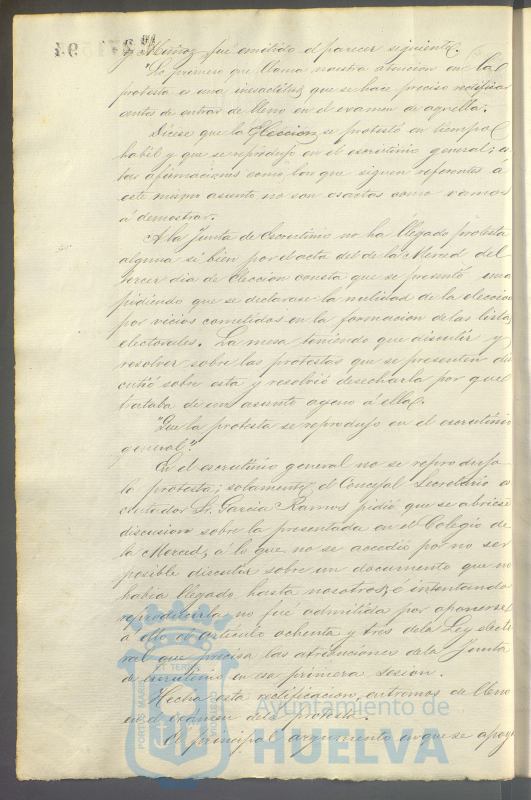 y Muñoz, fue emitido el parecer siguiente.
"Lo primero que llama nuestra atencion en la
protesta es una inexactitud que se hace preciso rectificar
antes de entrar de lleno en el examen de aquella.
Dicese que la Eleccion se protestó en tiempo
habil y que se reprodujo en el escrutinio general; e
tas afirmaciones como las que siguen referentes á
este mismo asunto no son exactas como vamos
á demostrar.
A la Junta de Escrutinio no ha llegado protesta
alguna si bien por el acta del de la Merced del
tercer dia de eleccion consta que se presentó una
pidiendo que se declarase la nulidad de la eleccion
por vicios cometidos en la formacion de las listas
electorales. La mesa teniendo que discutir y
resolver sobre las protestas que se presenten dis
cutió sobre esta y resolvió desecharla por que
trataba de un asunto ageno á ella.
"Que la protesta se reprodujo en el escrutinio
general".
En el escrutinio general no se reprodujo
la protesta; solamente el Concejal Secretario es
crutador Sr. Garcia Ramos pidió que se abriese
discusion sobre la presentada en el Colegio de
la Merced, á lo que no se accedió por no ser
posible discutir sobre un documento que no
habia llegado hasta nosotros, é intentando
reproducirla no fue admitida por oponerse
á ello el articulo ochenta y tres de la Ley electo
ral que precisa las atribuciones de la Junta
de escrutinio en esa primera sesion.
Hecha esta rectificacion entremos de lleno
en el examen de la protesta.
El principal argumento en que se apoya
PORTUS MARIS ET TERRE CUSTODIA
Ayuntamiento de
HUELVA